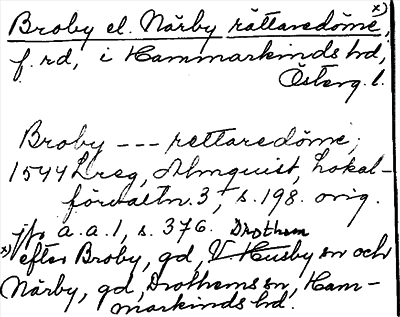 Broby el. Närby rättaredöme, x)
f. rd, i Hammarkinds hd,
Österg. l.
Broby --- rettaredöme,
1544 Lreg, Almquist, Lokal-
förvaltn. 3, s. 198. orig.
jfr a.a. 1, s. 376. Drothem
x) efter Broby, gd, V Husby sn och
Närby, gd, Drothems sn, Ham-
markinds hd.